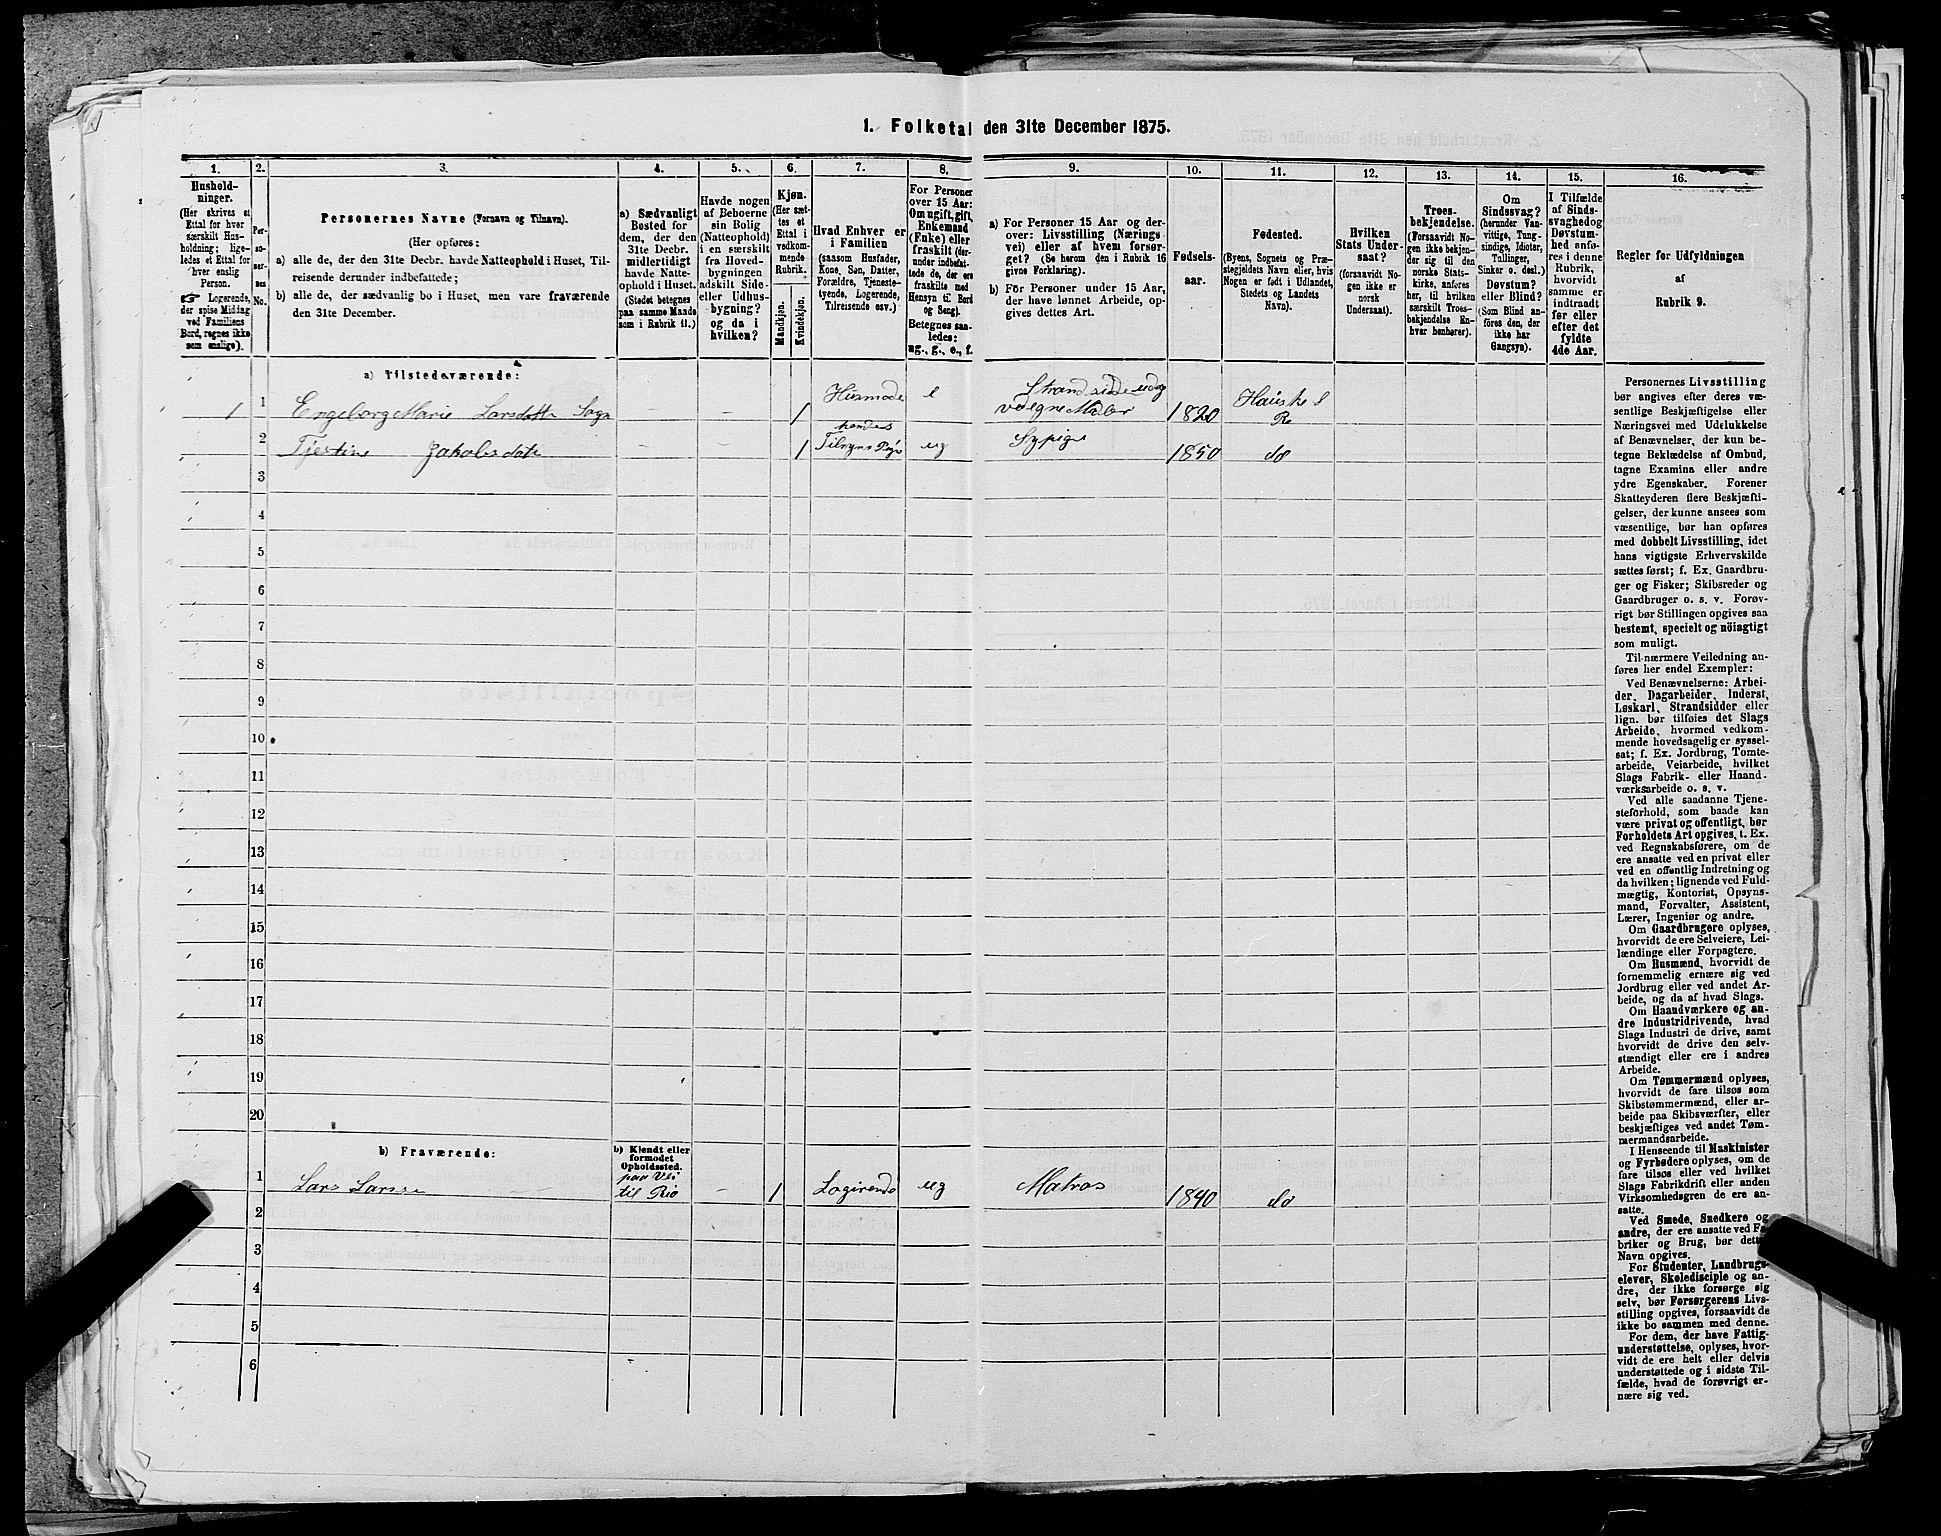 1. Folketal den 31te December 1875.
1.
Hushold-
ninger.
(Her skrives et
Ettal for hver
særskilt Hus-
holdning; lige-
ledes et Ettal for
hver enslig
Person.
Logerende,
der spise Middag
ved Familiens
Bord, regnes ikke
som enslige).
2.
Per-
so-
ner-
nes
No.
3.
Personernes Navne (Fornavn og Tilnavn).
(Her opføres:
a) alle de, der den 31te Decbr. havde Natteophold i Huset, Til-
reisende derunder indbefattede;
b) alle de, der sædvanlig bo i Huset, men vare fraværende
den 31te December.
4.
a) Sædvanligt
Bosted for
dem, der den
31te Decbr.
midlertidigt
havde Natte-
ophold i Huset.
(Stedet betegnes
paa samme Maade
som i Rubrik 11.)
5.
Havde nogen
af Beboerne
sin Bolig
(Natteophold)
i en særskilt
fra Hoved-
bygningen
adskilt Side-
eller Udhus-
bygning?
og da i
hvilken?
6.
Kjøn.
(Her sæt-
tes et
Ettal i
vedkom-
mende
Rubrik.
Mandkjøn.
Kvindekjøn.
7.
Hvad Enhver er
i Familien
(saasom Husfader,
Kone, Søn, Datter,
Forældre, Tjeneste-
tyende, Logerende,
Tilreisende osv.)
8.
For Personer
over 15 Aar:
Om ugift, gift,
Enkemand
(Enke) eller
fraskilt (der-
under indbefat-
tede de, der ere
fraskilte med
Hensyn til Bord
og Seng).
Betegnes saa-
ledes:
ug., g., e., f.
9.
a) For Personer 15 Aar og der-
over: Livsstilling (Nærings
vei) eller af hvem forsør-
get? (Se herom den i Rubrik 16
givne Forklaring).
b) For Personer under 15 Aar,
der have lønnet Arbeide, op-
gives dettes Art.
10.
Fødsels-
aar.
11.
Fødested.
(Byens, Sognets og Præ-
stegjeldets Navn eller, hvis
Nogen er født i Udlandet,
Stedets og Landets
Navn).
12.
Hvilken
Stats Under-
saat?
(forsaavidt No-
gen ikke er
norsk
Undersaat).
13.
Troes-
bekjendelse.
(Forsaavidt No-
gen ikke bekjen-
der sig til den
norske Stats-
kirke, anføres
her, til hvilken
særskilt Troes-
bekjendelse En-
hver henhører).
14.
Om
Sindssvag?
(herunder Van-
vittige, Tung-
sindige, Idioter,
Tullinger,
Sinker o. desl.)
Døvstum?
eller Blind?
(Som Blind an-
føres den, der
ikke har
Gangsyn).
15.
I Tilfælde
af Sinds-
svaghed og
Døvstum-
hed anfø-
res i denne
Rubrik,
hvorvidt
samme er
indtraadt
før eller
efter det
fyldte
4de Aar.
16.
Regler for Udfyldningen
af
Rubrik 9.
a) Tilstedeværende:
1 1 Engeborg Marie Larsdatte - - 1 Husmode e Strandsidde 1820 Hauske Re
2 Tjestine Jakobsdate - - 1 ug Sypige 1850 do
3
4
5
6
7
8
9
10
11
12
13
14
15
16
17
18
19
20
b) Fraværende:
b) Kjendt eller
formodet
Opholdssted.
1 Lars Larsse paa Vei til Rio - 1 Logirende ug Matros 1840 do
2
3
4
5
6
Personernes Livsstilling
bør angives efter deres væ-
sentlige Beskjæftigelse eller
Næringsvei med Udelukkelse
af Benævnelser, der kun be-
tegne Beklædelse af Ombud,
tagne Examina eller andre
ydre Egenskaber. Forener
Skatteyderen flere Beskjæfti-
gelser, der kunne ansees som
væsentlige, bør han opføres
med dobbelt Livsstilling, idet
hans vigtigste Erhvervskilde
sættes først; f. Ex. Gaardbru-
ger og Fisker; Skibsreder og
Gaardbruger o. s. v. Forøv-
rigt bør Stillingen opgives saa
bestemt, specielt og nöiagtigt
som muligt.
Til nærmere Veiledning an-
føres her endel Exempler:
Ved Benævnelserne: Arbei-
der, Dagarbeider, Inderst,
Løskarl, Strandsidder eller
lign. bør tilføies det Slags
Arbeide, hvormed vedkom-
mende hovedsagelig er syssel-
sat; f. Ex. Jordbrug, Tomte-
arbeide, Veiarbeide, hvilket
Slags Fabrik- eller Haand-
værksarbeide o. s. v.
Ved alle saadanne Tjene-
steforhold, som baade kan
være privat og offentligt, bør
Forholdets Art opgives, t. Ex.
ved Regnskabsførere, om de
ere ansatte ved en privat eller
ved en offentlig Indretning og
da hvilken; lignende ved Fuld-
mægtig, Kontorist, Opsyns-
mand, Forvalter, Assistent,
Lærer, Ingeniør og andre.
Om Gaardbrugere oplyses,
hvorvidt de ere Selveiere, Lei-
lændinge eller Forpagtere.
Om Husmænd, hvorvidt de
fornemmelig ernære sig ved
Jordbrug eller ved andet Ar-
beide, og da af hvad Slags.
Om Haandværkere og an-
dre Industridrivende, hvad
Slags Industri de drive, samt
hvorvidt de drive den selv-
stændigt eller ere i andres
Arbeide.
Om Tømmermænd oplyses,
hvorvidt de fare tilsøs som
Skibstømmermænd, eller ar-
beide paa Skibsværfter, eller
beskjæftiges ved andet Tøm-
mermandsarbeide.
I Henseende til Maskinister
og Fyrbødere oplyses, om de
fare tilsøs eller ved hvilket
Slags Fabrikdrift eller anden
Virksomhedsgren de ere an-
satte.
Ved Smede, Snedkere og
andre, der ere ansatte ved Fa-
briker og Brug, bør dettes
Navn opgives.
For Studenter, Landbrugs-
elever, Skoledisciple og an-
dre, der ikke forsørge sig
selv, bør Forsørgerens Livs-
stilling opgives, forsaavidt de
ikke bo sammen med denne.
For dem, der have Fattig-
understøttelse, oplyses, hvor-
vidt de ere helt eller delvis
understøttede og i sidste Til-
fælde, hvad de forøvrigt er-
nære sig ved.